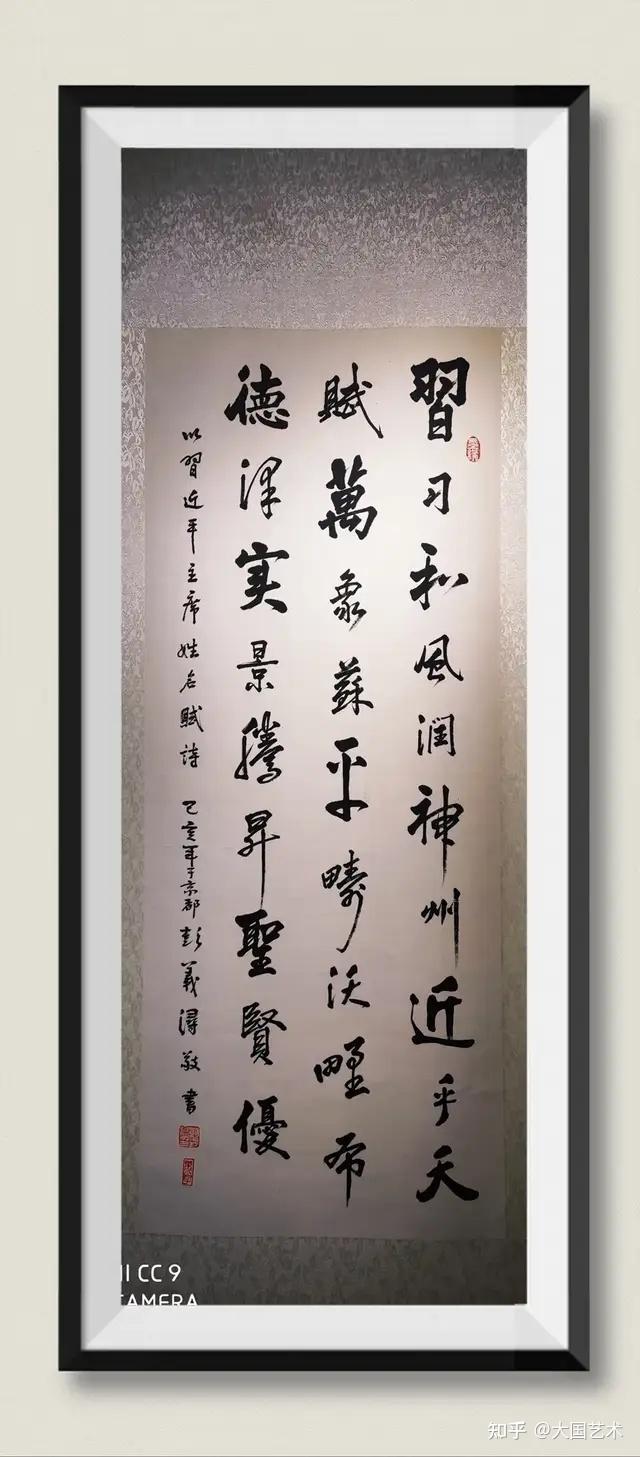 習习和風潤神州近乎天
賦萬象蘇平疇沃野布
德澤实景騰昇聖賢優
以習近平主席姓名賦詩 己亥年于京都彭義潯敬書
II CC 9
CAMERA
知乎 @大国艺术